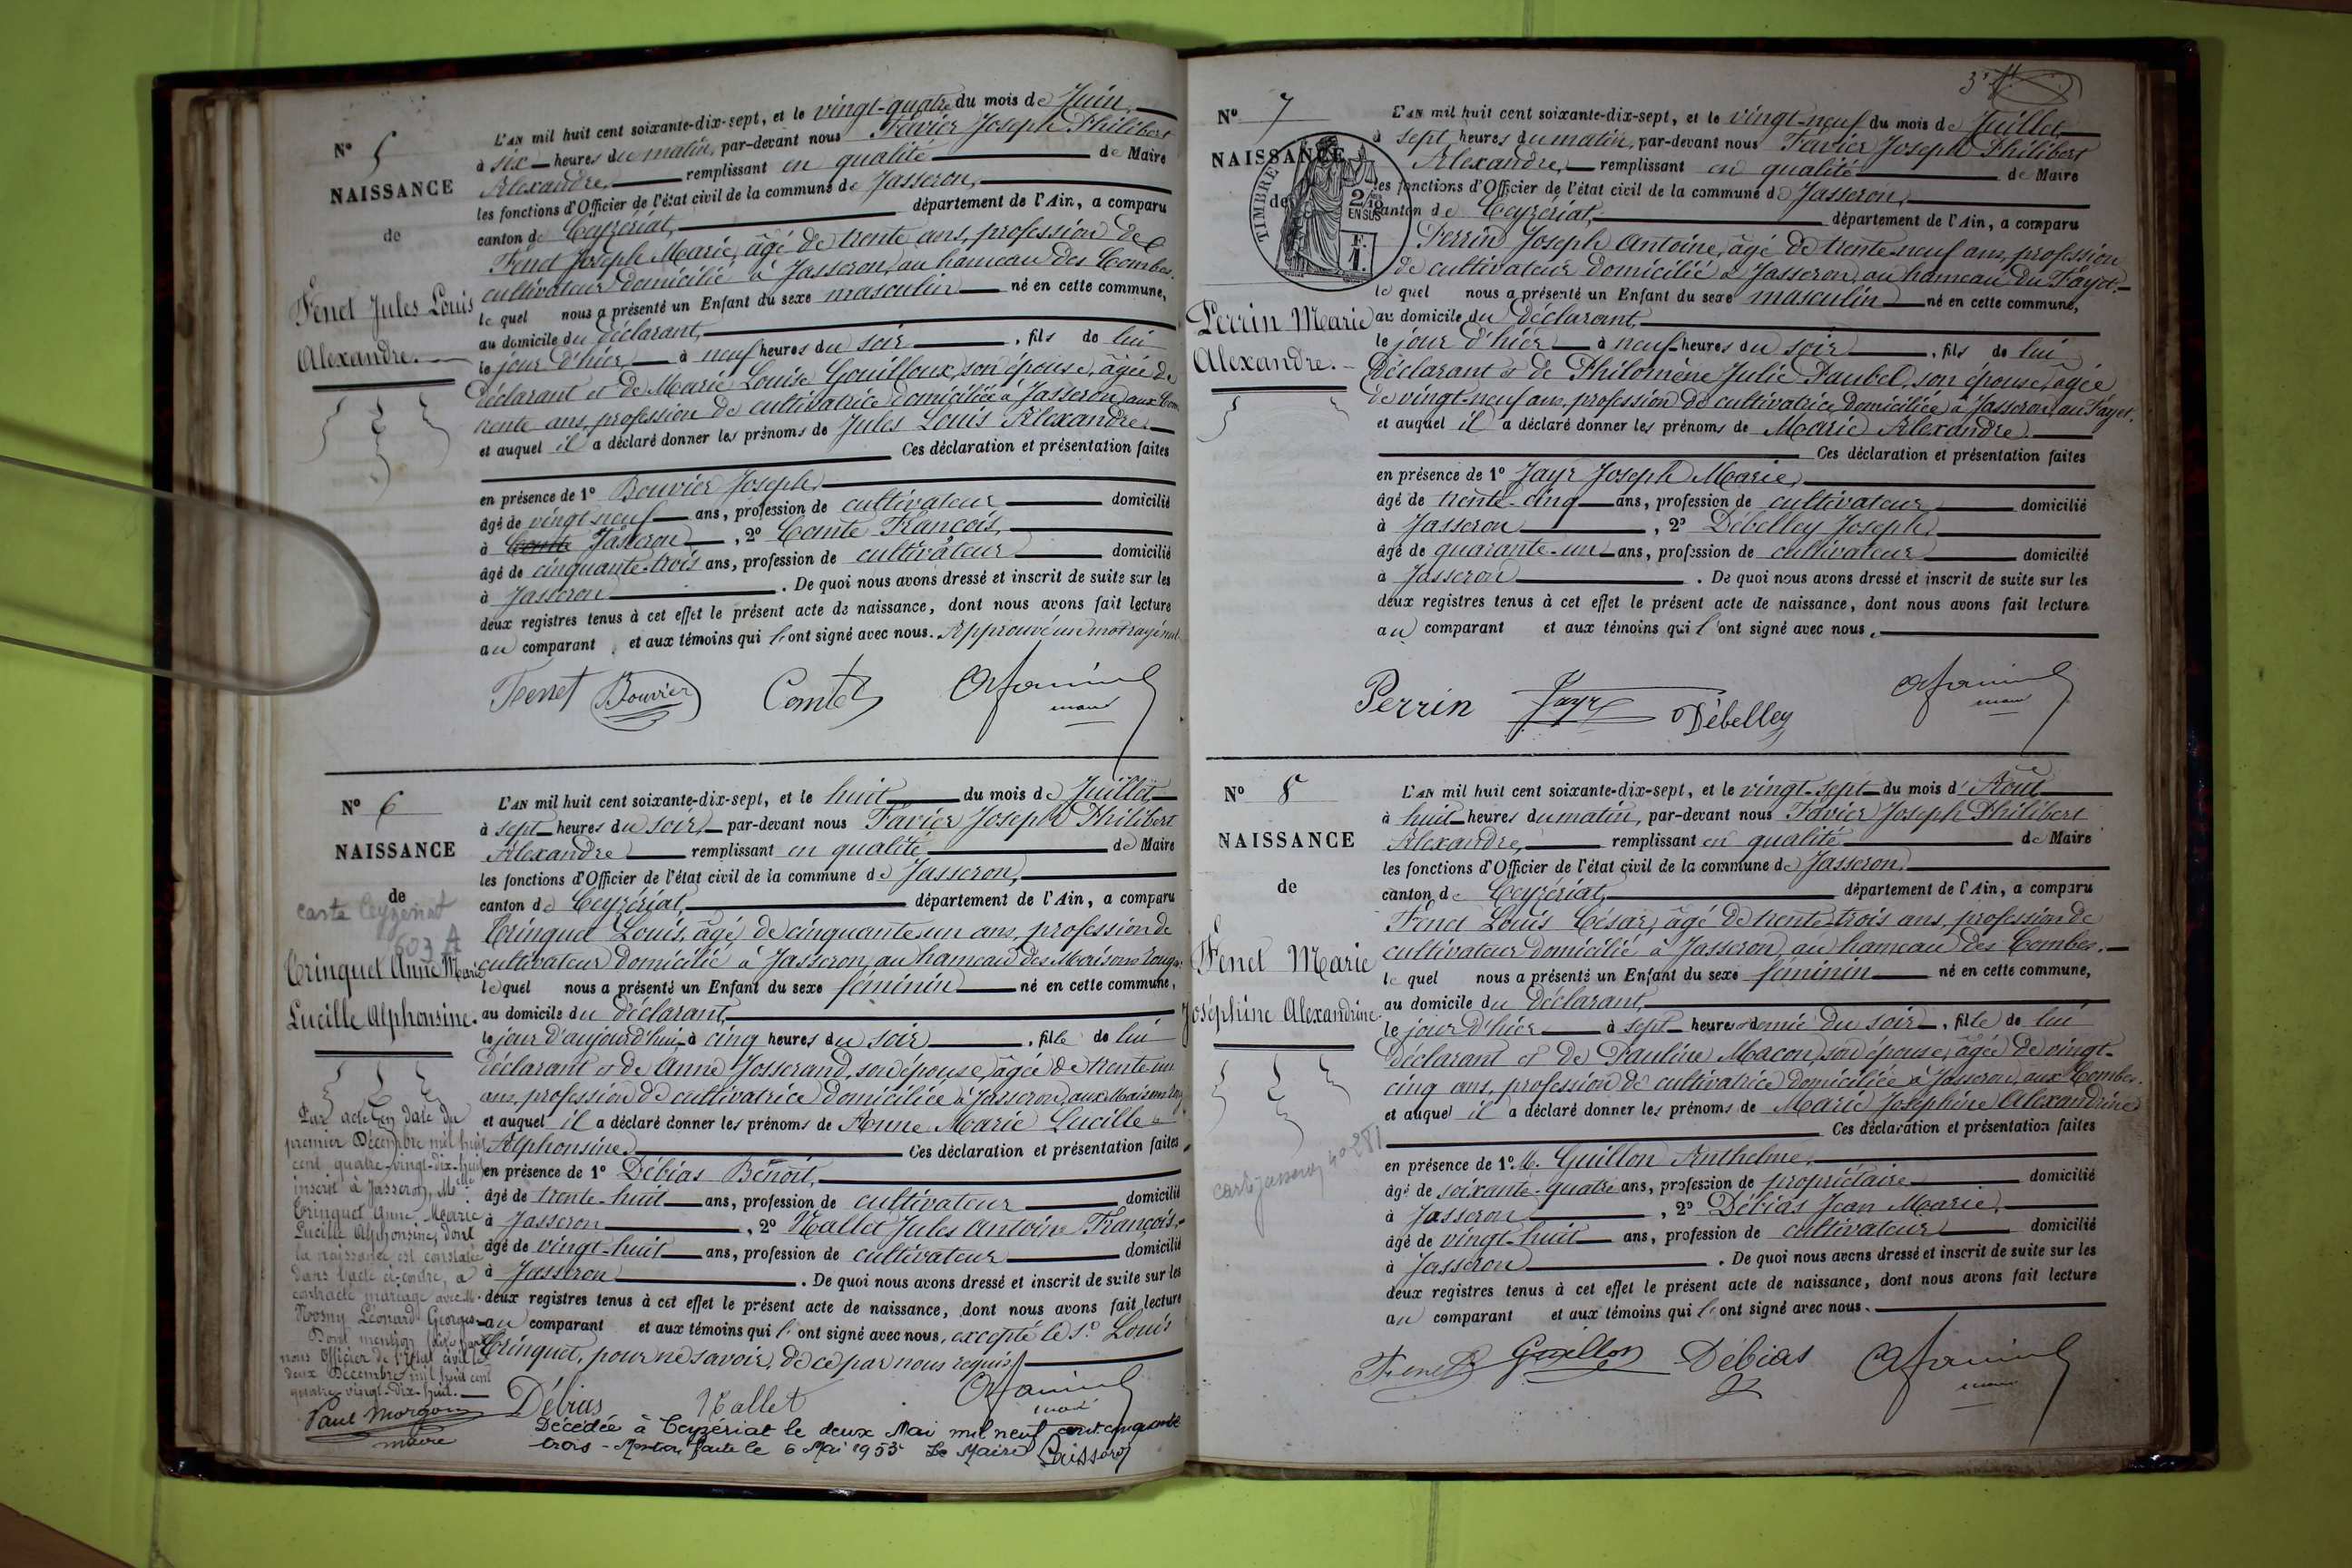 N° 5
NAISSANCE
de
Fenet Jules Louis
Alexandre.
L'AN mil huit cent soixante-dix-sept, et le vingt-quatre du mois de Juin,
à six heures du matin, par-devant nous Favier Joseph Philibert
Alexandre, remplissant en qualité de Maire
les fonctions d'Officier de l'état civil de la commune de Jasseron,
canton de Ceyzériat, département de l'Ain, a comparu
Fenet Joseph Marie, âgé de trente ans, profession de
cultivateur domicilié à Jasseron, au hameau des Combes.
le quel nous a présenté un Enfant du sexe masculin né en cette commune,
au domicile du déclarant,
le jour d'hier, à neuf heures du soir, fils de lui
déclarant et de Marie Louise Gouilloux, son épouse, âgée de
trente ans, profession de cultivatrice domiciliée à Jasseron, aux Com
et auquel il a déclaré donner les prénoms de Jules Louis Alexandre.
Ces déclaration et présentation faites
en présence de 1° Bouvier Joseph,
âgé de vingt neuf ans, profession de cultivateur domicilié
à Comte Jasseron, 2° Comte François,
âgé de cinquante-trois ans, profession de cultivateur domicilié
à Jasseron. De quoi nous avons dressé et inscrit de suite sur les
deux registres tenus à cet effet le présent acte de naissance, dont nous avons fait lecture
au comparant, et aux témoins qui l'ont signé avec nous. Approuvé un mot rayé nul.
Fenet Bouvier Comte
N° 6
NAISSANCE
de
carte Ceyzeriat
603 A
Trinquet Anne Marie
Lucille Alphonsine.
Par acte en date du
premier Décembre mil huit
cent quatre-vingt-dix-huit
inscrit à Jasseron, Melle
Trinquet Anne Marie
Lucille Alphonsine, dont
la naissance est constatée
dans l'acte ci-contre, a
contracté mariage avec M.
Léonard Georges
Dont mention faite par
nous Officier de l'Etat civil le
deux Décembre mil huit cent
quatre-vingt-dix-huit.
Paul Morgon
maire
L'AN mil huit cent soixante-dix-sept, et le huit du mois de Juillet,
à sept heures du soir, par-devant nous Favier Joseph Philibert
Alexandre remplissant en qualité de Maire
les fonctions d'Officier de l'état civil de la commune de Jasseron,
canton de Ceyzériat, département de l'Ain, a comparu
Trinquet Louis, âgé de cinquante un ans, profession de
cultivateur domicilié à Jasseron, au hameau des Maisons Longs.
lequel nous a présenté un Enfant du sexe féminin né en cette commune,
au domicile du déclarant,
le jour d'aujourd'hui à cinq heures du soir, fille de lui
déclarant et de Anne Josserand, son épouse, âgée de trente un
ans, profession de cultivatrice domiciliée à Jasseron, aux Maisons Long
et auquel il a déclaré donner les prénoms de Anne Marie Lucille
Alphonsine. Ces déclaration et présentation faites
en présence de 1° Débias Benoît,
âgé de trente-huit ans, profession de cultivateur domicilié
à Jasseron, 2° Nallet Jules Antoine François,
âgé de vingt-huit ans, profession de cultivateur domicilié
à Jasseron. De quoi nous avons dressé et inscrit de suite sur les
deux registres tenus à cet effet le présent acte de naissance, dont nous avons fait lecture
au comparant et aux témoins qui l'ont signé avec nous, excepté le Sr Louis
Trinquet, pour ne savoir, de ce par nous requis.
Débias Nallet
Décédée à Ceyzériat le deux Mai mil neuf cent cinquante
trois - Mention faite le 6 Mai 1953 Le Maire
N° 7
NAISSANCE
de
TIMBRE
2/10
EN SUS
Perrin Marie
Alexandre.
L'AN mil huit cent soixante-dix-sept, et le vingt-neuf du mois de Juillet,
à sept heures du matin, par-devant nous Favier Joseph Philibert
Alexandre, remplissant en qualité de Maire
les fonctions d'Officier de l'état civil de la commune de Jasseron,
canton de Ceyzériat, département de l'Ain, a comparu
Perrin Joseph Antoine, âgé de trente-neuf ans, profession
de cultivateur domicilié à Jasseron, au hameau du Fayet.
le quel nous a présenté un Enfant du sexe masculin né en cette commune,
au domicile du déclarant,
le jour d'hier à neuf heures du soir, fils de lui
déclarant et de Philomène Julie Paubel, son épouse, âgée
de vingt-neuf ans, profession de cultivatrice domiciliée à Jasseron, au Fayet,
et auquel il a déclaré donner les prénoms de Marie Alexandre.
Ces déclaration et présentation faites
en présence de 1° Jayr Joseph Marie,
âgé de trente-cinq ans, profession de cultivateur domicilié
à Jasseron, 2° Débelley Joseph,
âgé de quarante-un ans, profession de cultivateur domicilié
à Jasseron. De quoi nous avons dressé et inscrit de suite sur les
deux registres tenus à cet effet le présent acte de naissance, dont nous avons fait lecture
au comparant et aux témoins qui l'ont signé avec nous,
Perrin Jayr Débelley
N° 8
NAISSANCE
de
Fenet Marie
Joséphine Alexandrine.
carte Jasseron
L'AN mil huit cent soixante-dix-sept, et le vingt-sept du mois d'Août
à huit heures du matin, par-devant nous Favier Joseph Philibert
Alexandre, remplissant en qualité de Maire
les fonctions d'Officier de l'état civil de la commune de Jasseron,
canton de Ceyzériat, département de l'Ain, a comparu
Fenet Louis César, âgé de trente-trois ans, profession de
cultivateur domicilié à Jasseron, au hameau des Combes.
le quel nous a présenté un Enfant du sexe féminin né en cette commune,
au domicile du déclarant,
le jour d'hier à sept heures demie du soir, fille de lui
déclarant et de Pauline Macon, son épouse, âgée de vingt-
cinq ans, profession de cultivatrice domiciliée à Jasseron, aux Combes.
et auquel il a déclaré donner les prénoms de Marie Joséphine Alexandrine
Ces déclaration et présentation faites
en présence de 1° M. Guillon Anthelme,
âgé de soixante-quatre ans, profession de propriétaire domicilié
à Jasseron, 2° Débias Jean Marie,
âgé de vingt-huit ans, profession de cultivateur domicilié
à Jasseron. De quoi nous avons dressé et inscrit de suite sur les
deux registres tenus à cet effet le présent acte de naissance, dont nous avons fait lecture
au comparant et aux témoins qui l'ont signé avec nous.
Fenet Guillon Débias